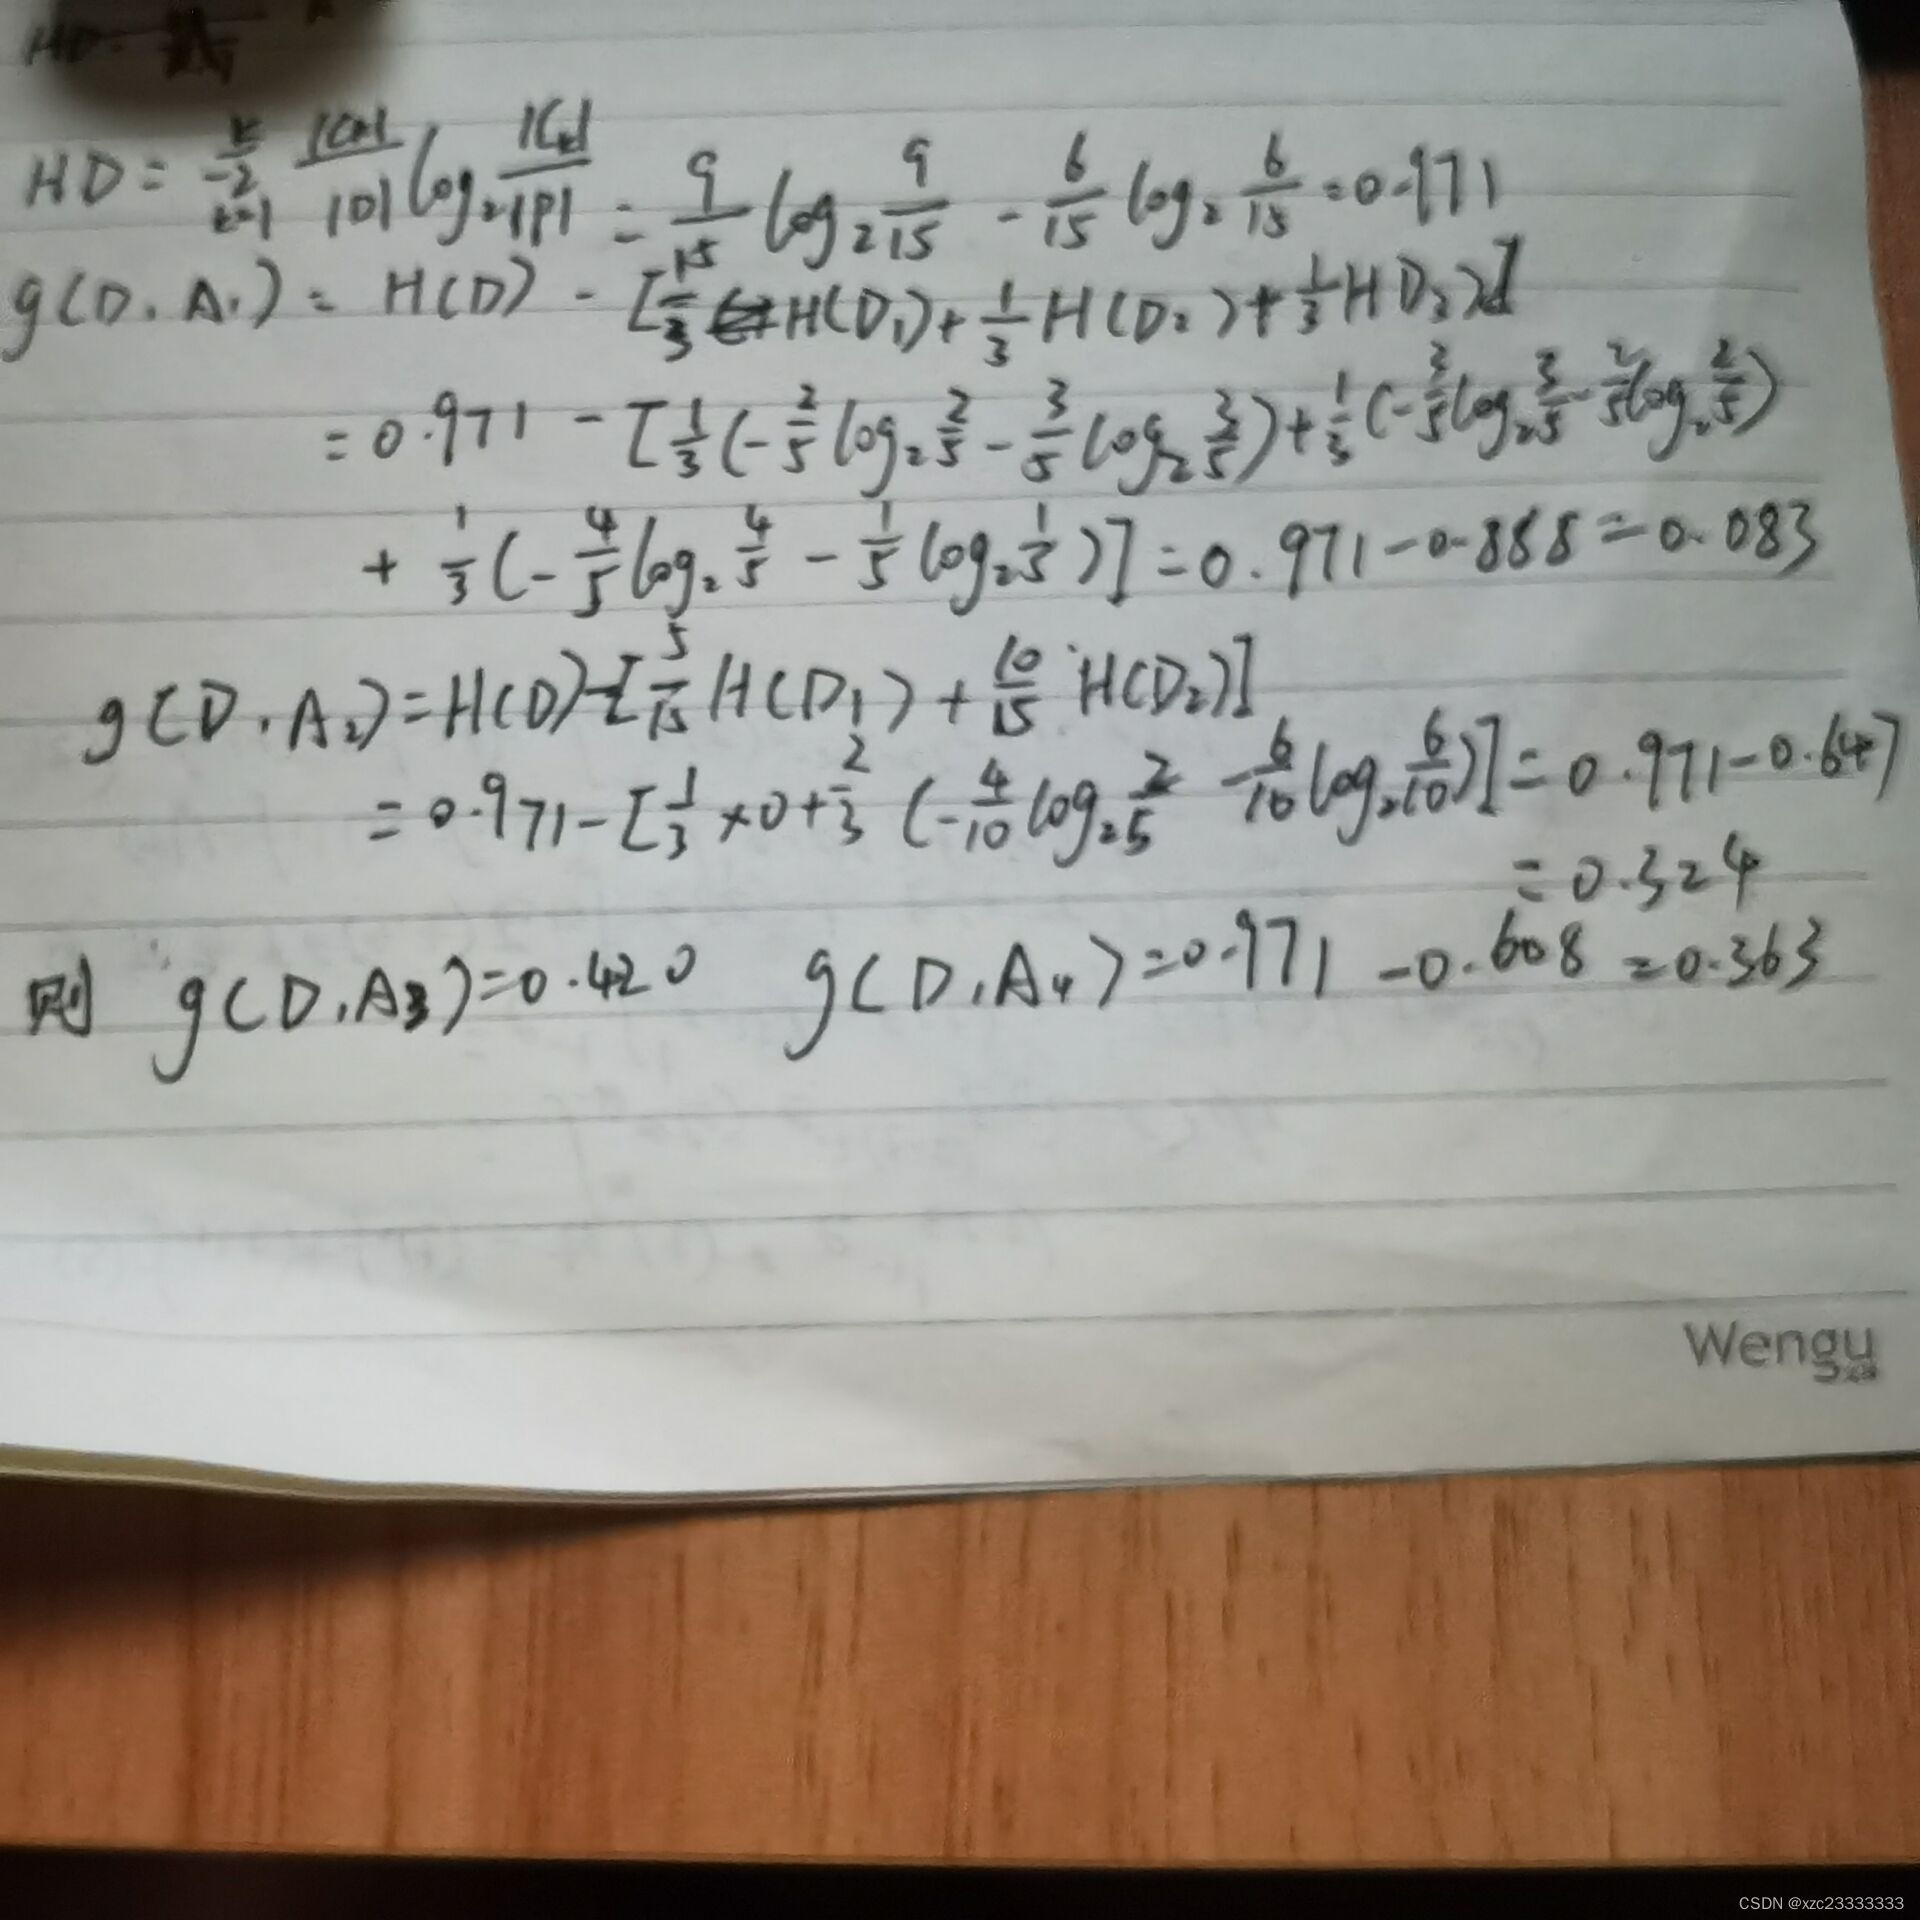 HD = -∑ k k=1 |Ck|/|D| log₂ |Ck|/|D| = 9/15 log₂ 9/15 - 6/15 log₂ 6/15 = 0.971
g(D, A₁) = H(D) - [1/3 H(D₁) + 1/3 H(D₂) + 1/3 HD₃)]
= 0.971 - [1/3 (-2/5 log₂ 2/5 - 3/5 log₂ 3/5) + 1/3 (-3/5 log₂ 3/5 - 2/5 log₂ 2/5)
+ 1/3 (-4/5 log₂ 4/5 - 1/5 log₂ 1/5)] = 0.971 - 0.888 = 0.083
g(D, A₂) = H(D) - [5/15 H(D₁) + 10/15 · H(D₂)]
= 0.971 - [1/3 × 0 + 2/3 (-4/10 log₂ 2/5 - 6/10 log₂ 6/10)] = 0.971 - 0.647
= 0.324
则 g(D, A₃) = 0.420 g(D, A₄) = 0.971 - 0.608 = 0.363
Wengu
CSDN @xzc23333333